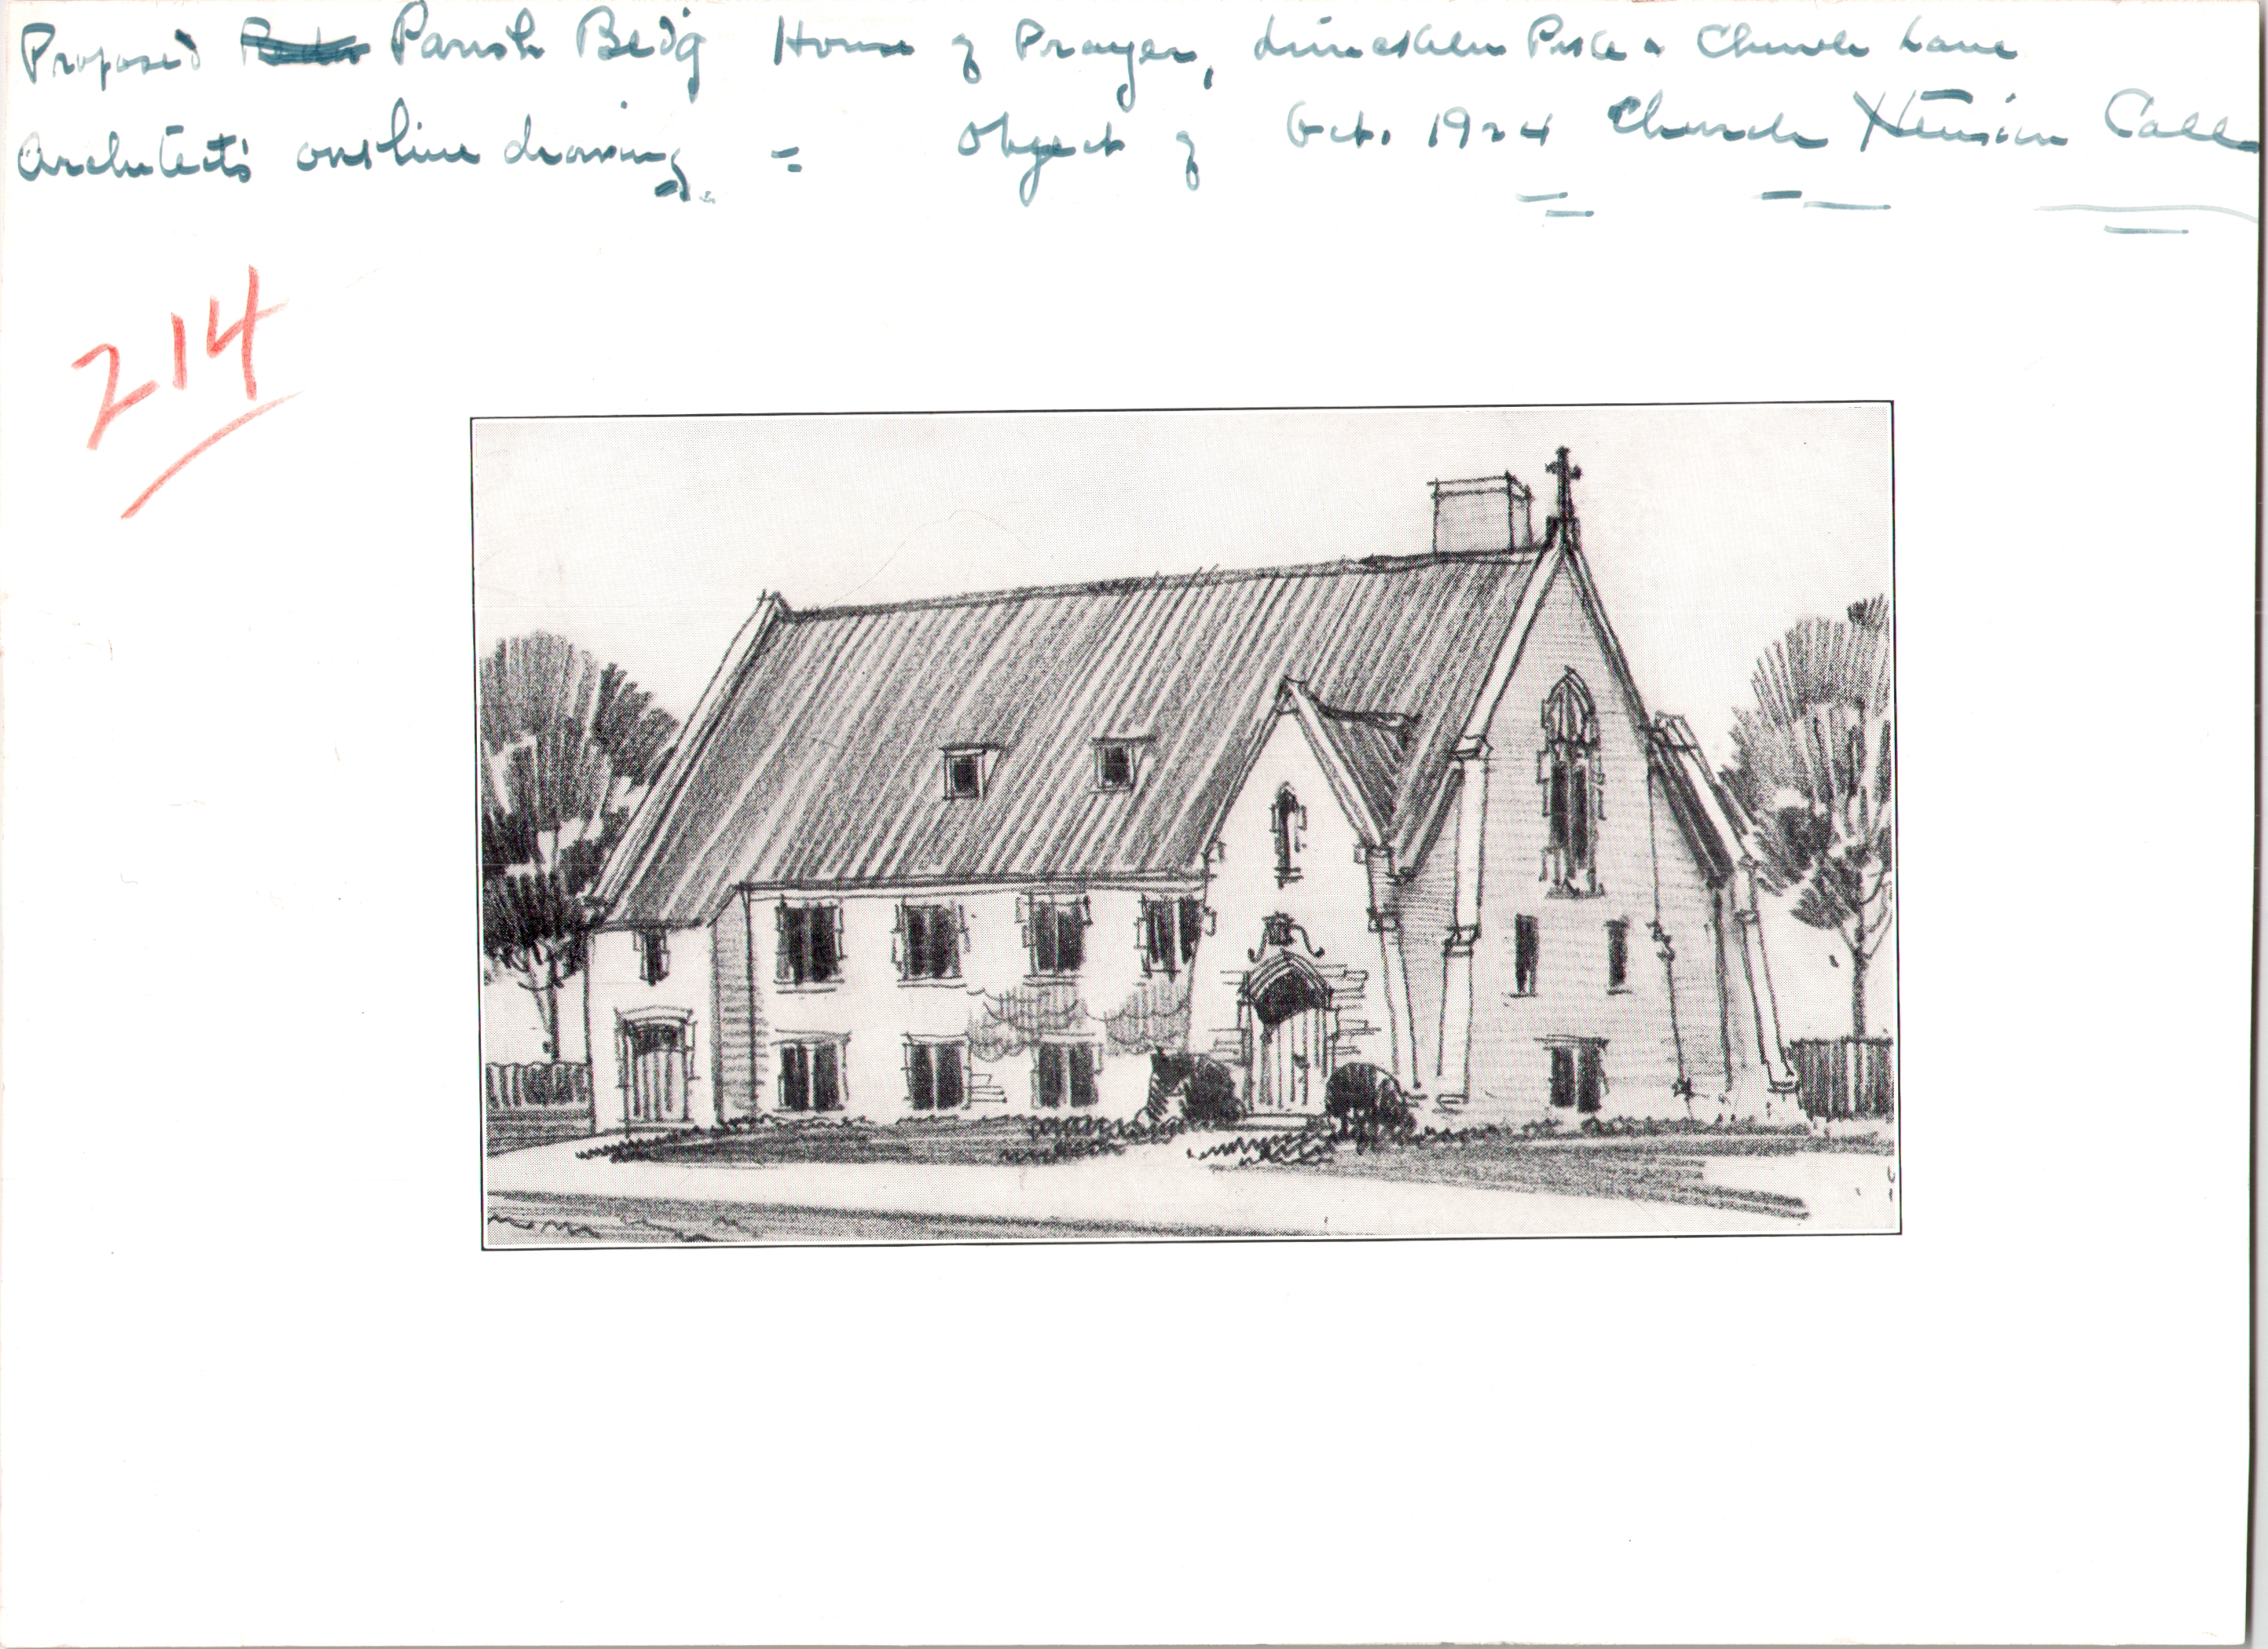 Proposed Parish Bldg House of Prayer, Limekiln Pike & Church Lane
Architect's outline drawing = Object of Oct. 1924 Church Xtension Call
214